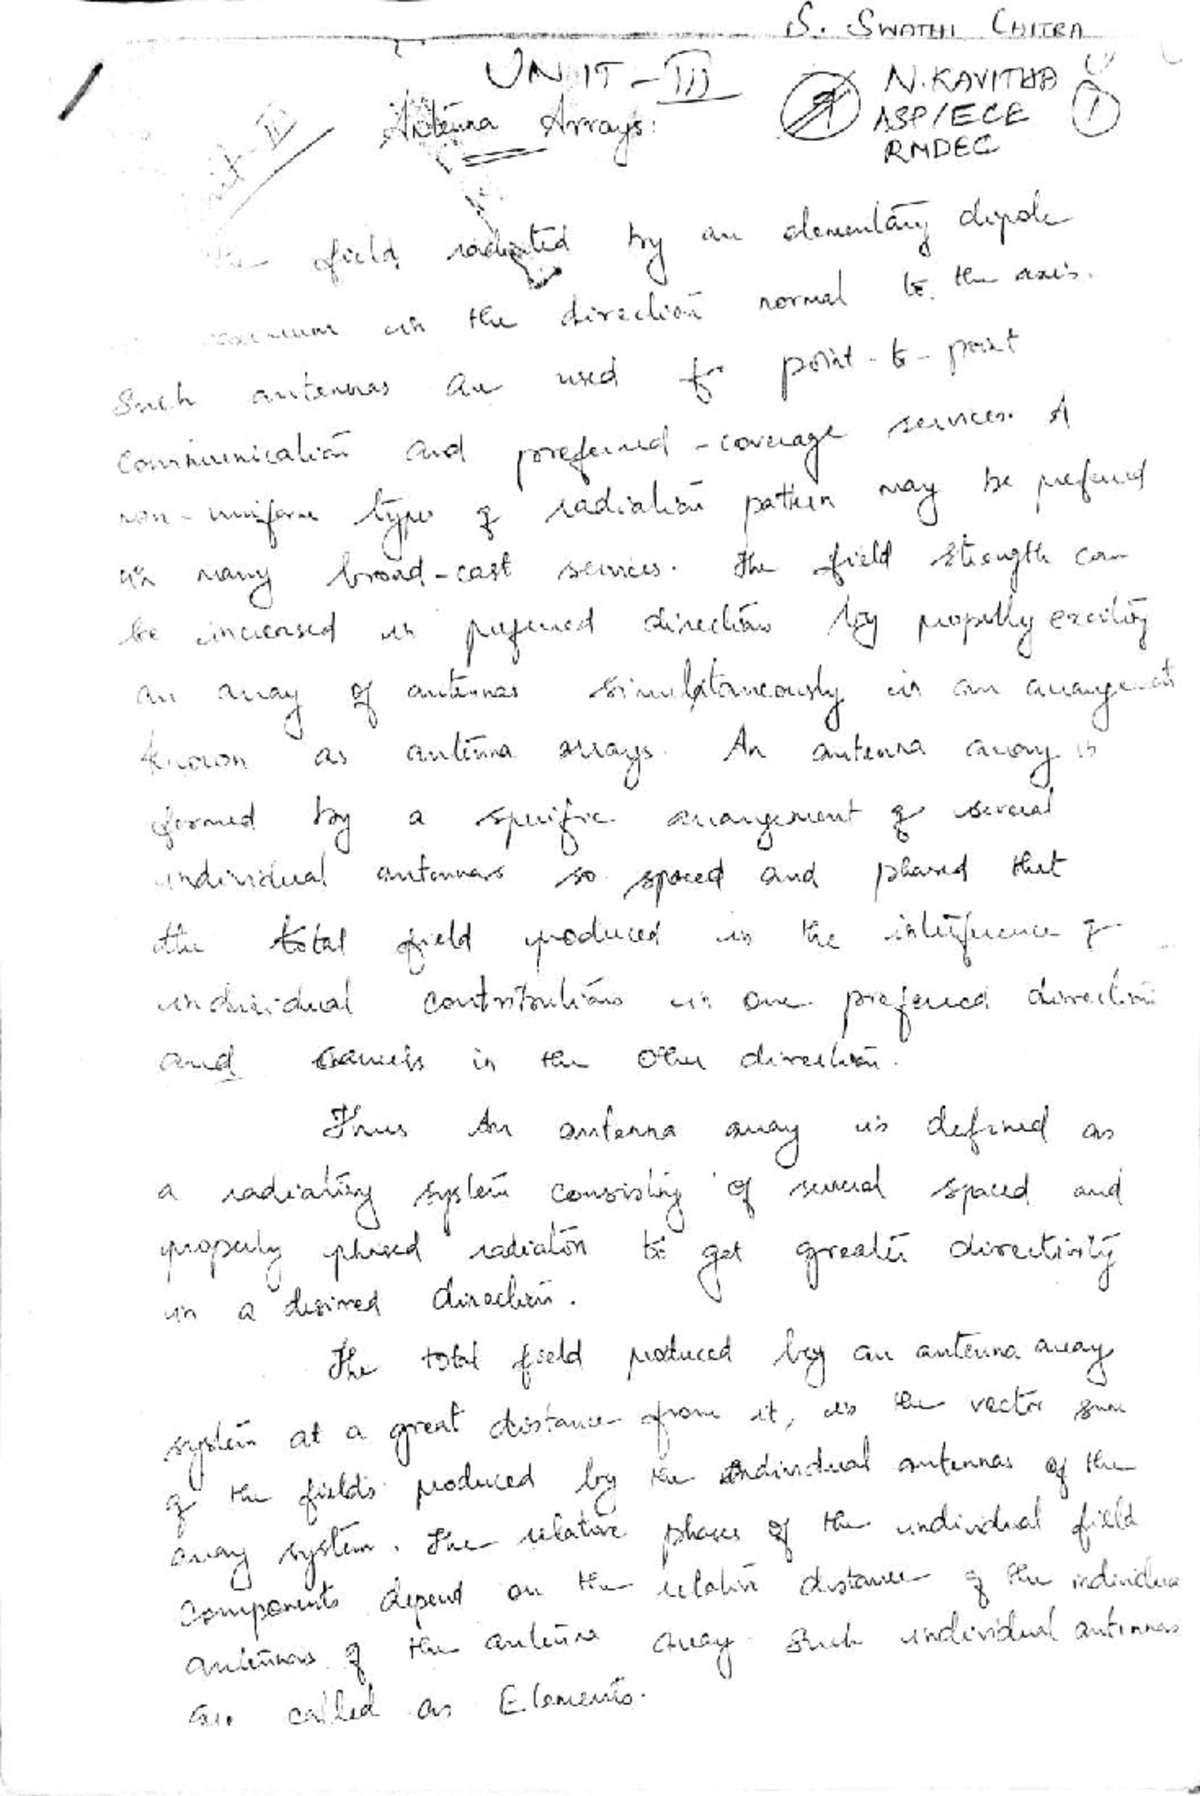 S. SWATHI CHITRA
UNIT - III
N. KAVITHA
ASP/ECE
RMDEC
1
Unit - III
Antenna Arrays:
The field radiated by an elementary dipole
maximum in the direction normal to the axis.
Such antennas are used for point-to-point
communication and preferred-coverage services. A
non-uniform type of radiation pattern may be preferred
in many broad-cast services. The field strength can
be increased in preferred direction by properly exciting
an array of antennas simultaneously in an arrangement
known as antenna arrays. An antenna array is
formed by a specific arrangement of several
individual antennas so spaced and phased that
the total field produced is the interference of
individual contributions in one preferred direction
and cancels in the other direction.
Thus An antenna array is defined as
a radiating system consisting of several spaced and
properly phased radiators to get greater directivity
in a desired direction.
The total field produced by an antenna array
system at a great distance from it, is the vector sum
of the fields produced by the individual antennas of the
array system. The relative phases of the individual field
components depend on the relative distance of the individual
antennas of the antenna array. Such individual antennas
are called as Elements.